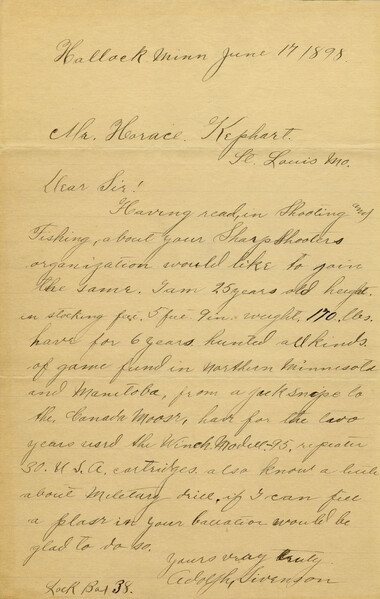 Hallock Minn June 17 1898.
Mr. Horace. Kephart.
St. Louis Mo.
Dear Sir!
Having read, in Shooting and
Fishing, about your Sharpshooters
organization would like to join
the same. I am 25 years old height
in stocking 5 9 in. weight. 170. lbs.
have for 6 years hunted all kinds
of game fund in Northern Minnesota
and Manitoba, from a jack snipe to
the, Canada Moose, have for the two
years used the Winch. Modell-95. repeater
30. U. S. A. cartridges. also know a little
about Miletary drill, if I can fill
a place in your would be
glad to do so.
Yours very truly
Adolph, Swenson
Lock Box 38.